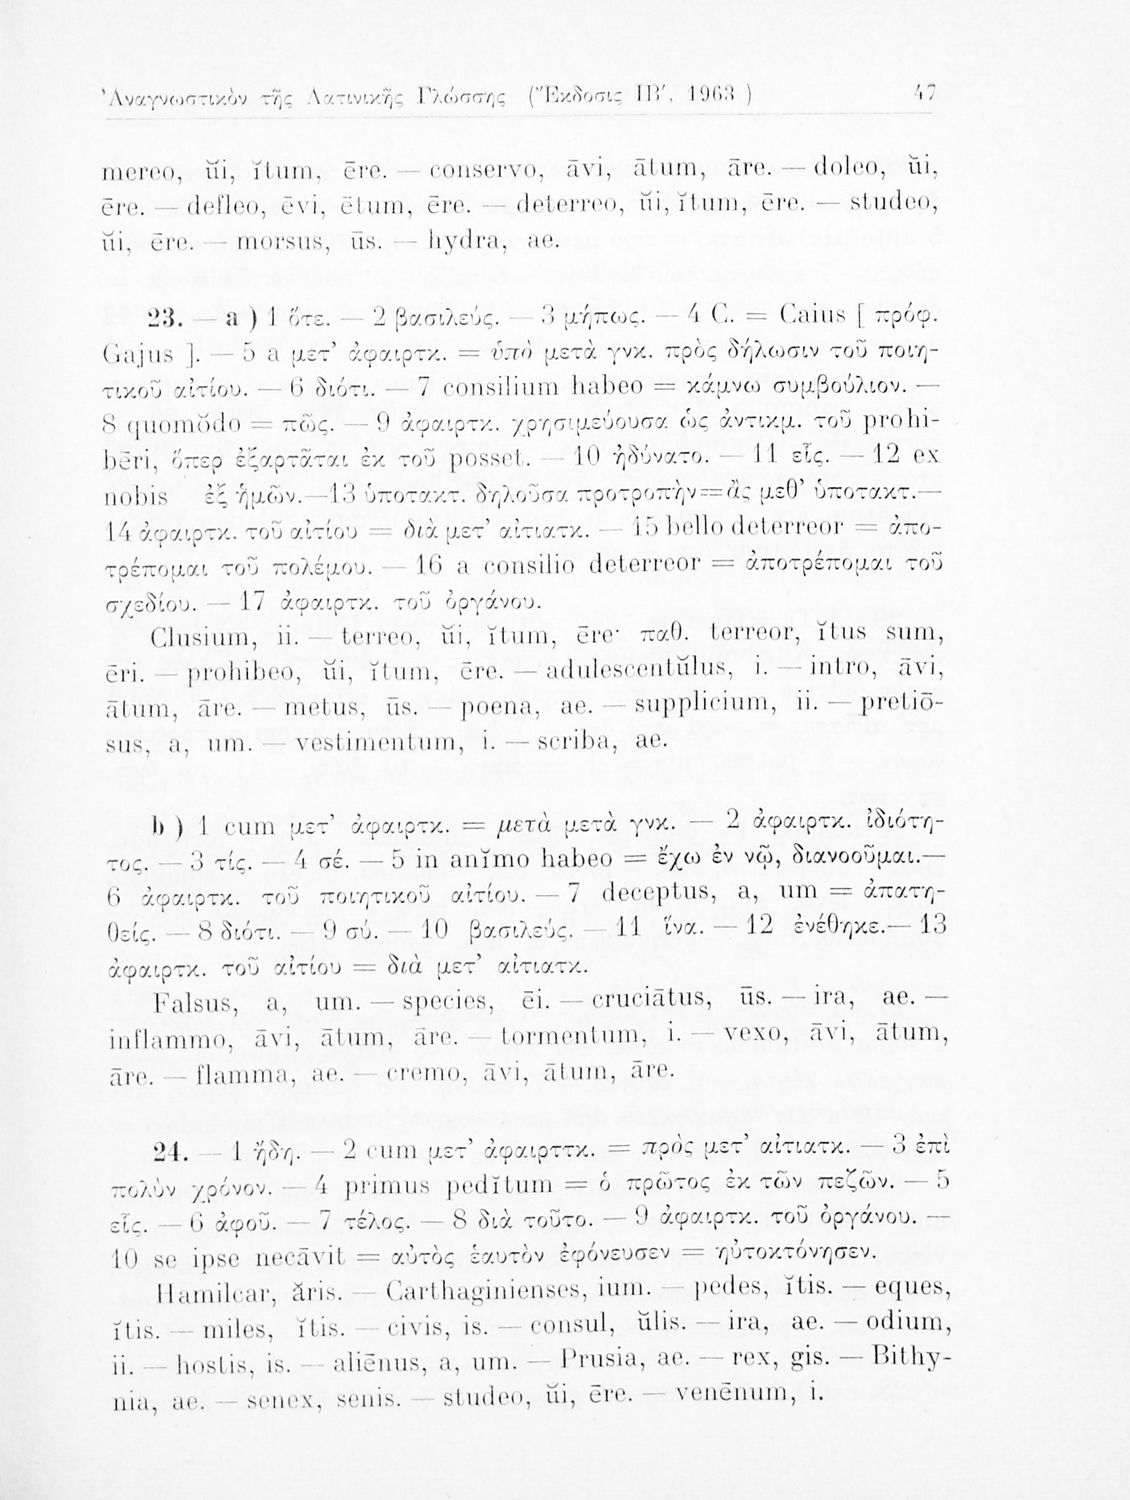 Ἀναγνωστικὸν τῆς Λατινικῆς Γλώσσης (Ἔκδοσις ΙΒ′, 1963) 47
mereo, ŭi, ĭtum, ēre. — conservo, āvi, ātum, āre. — doleo, ŭi,
ēre. — defleo, ēvi, ētum, ēre. — deterreo, ŭi, ĭtum, ēre. — studeo,
ŭi, ēre. — morsus, ūs. — hydra, ae.
23. — a ) 1 ὅτε. — 2 βασιλεύς. — 3 μήπως. — 4 C. = Caius [ πρόφ.
Gajus ]. — 5 a μετ' ἀφαιρτκ. = ὑπὸ μετὰ γνκ. πρὸς δήλωσιν τοῦ ποιη-
τικοῦ αἰτίου. — 6 διότι. — 7 consilium habeo = κάμνω συμβούλιον. —
8 quomŏdo = πῶς. — 9 ἀφαιρτκ. χρησιμεύουσα ὡς ἀντικμ. τοῦ prohi-
bēri, ὅπερ ἐξαρτᾶται ἐκ τοῦ posset. — 10 ἠδύνατο. — 11 εἷς. — 12 ex
nobis ἐξ ἡμῶν.—13 ὑποτακτ. δηλοῦσα προτροπὴν=ἂς μεθ' ὑποτακτ.—
14 ἀφαιρτκ. τοῦ αἰτίου = διὰ μετ' αἰτιατκ. — 15 bello deterreor = ἀπο-
τρέπομαι τοῦ πολέμου. — 16 a consilio deterreor = ἀποτρέπομαι τοῦ
σχεδίου. — 17 ἀφαιρτκ. τοῦ ὀργάνου.
Clusium, ii. — terreo, ŭi, ĭtum, ēre· παθ. terreor, ĭtus sum,
ēri. — prohibeo, ŭi, ĭtum, ēre. — adulescentŭlus, i. — intro, āvi,
ātum, āre. — metus, ūs. — poena, ae. — supplicium, ii. — pretiō-
sus, a, um. — vestimentum, i. — scriba, ae.
b ) 1 cum μετ' ἀφαιρτκ. = μετὰ μετὰ γνκ. — 2 ἀφαιρτκ. ἰδιότη-
τος. — 3 τίς. — 4 σέ. — 5 in anĭmo habeo = ἔχω ἐν νῷ, διανοοῦμαι.—
6 ἀφαιρτκ. τοῦ ποιητικοῦ αἰτίου. — 7 deceptus, a, um = ἀπατη-
θείς. — 8 διότι. — 9 σύ. — 10 βασιλεύς. — 11 ἵνα. — 12 ἐνέθηκε.— 13
ἀφαιρτκ. τοῦ αἰτίου = διὰ μετ' αἰτιατκ.
Falsus, a, um. — species, ēi. — cruciātus, ūs. — ira, ae. —
inflammo, āvi, ātum, āre. — tormentum, i. — vexo, āvi, ātum,
āre. — flamma, ae. — cremo, āvi, ātum, āre.
24. — 1 ἤδη. — 2 cum μετ' ἀφαιρττκ. = πρὸς μετ' αἰτιατκ. — 3 ἐπὶ
πολὺν χρόνον. — 4 primus pedĭtum = ὁ πρῶτος ἐκ τῶν πεζῶν. — 5
εἷς. — 6 ἀφοῦ. — 7 τέλος. — 8 διὰ τοῦτο. — 9 ἀφαιρτκ. τοῦ ὀργάνου. —
10 se ipse necāvit = αὐτὸς ἑαυτὸν ἐφόνευσεν = ηὐτοκτόνησεν.
Hamilcar, ăris. — Carthaginienses, ium. — pedes, ĭtis. — eques,
ĭtis. — miles, ĭtis. — civis, is. — consul, ŭlis. — ira, ae. — odium,
ii. — hostis, is. — aliēnus, a, um. — Prusia, ae. — rex, gis. — Bithy-
nia, ae. — senex, senis. — studeo, ŭi, ēre. — venēnum, i.